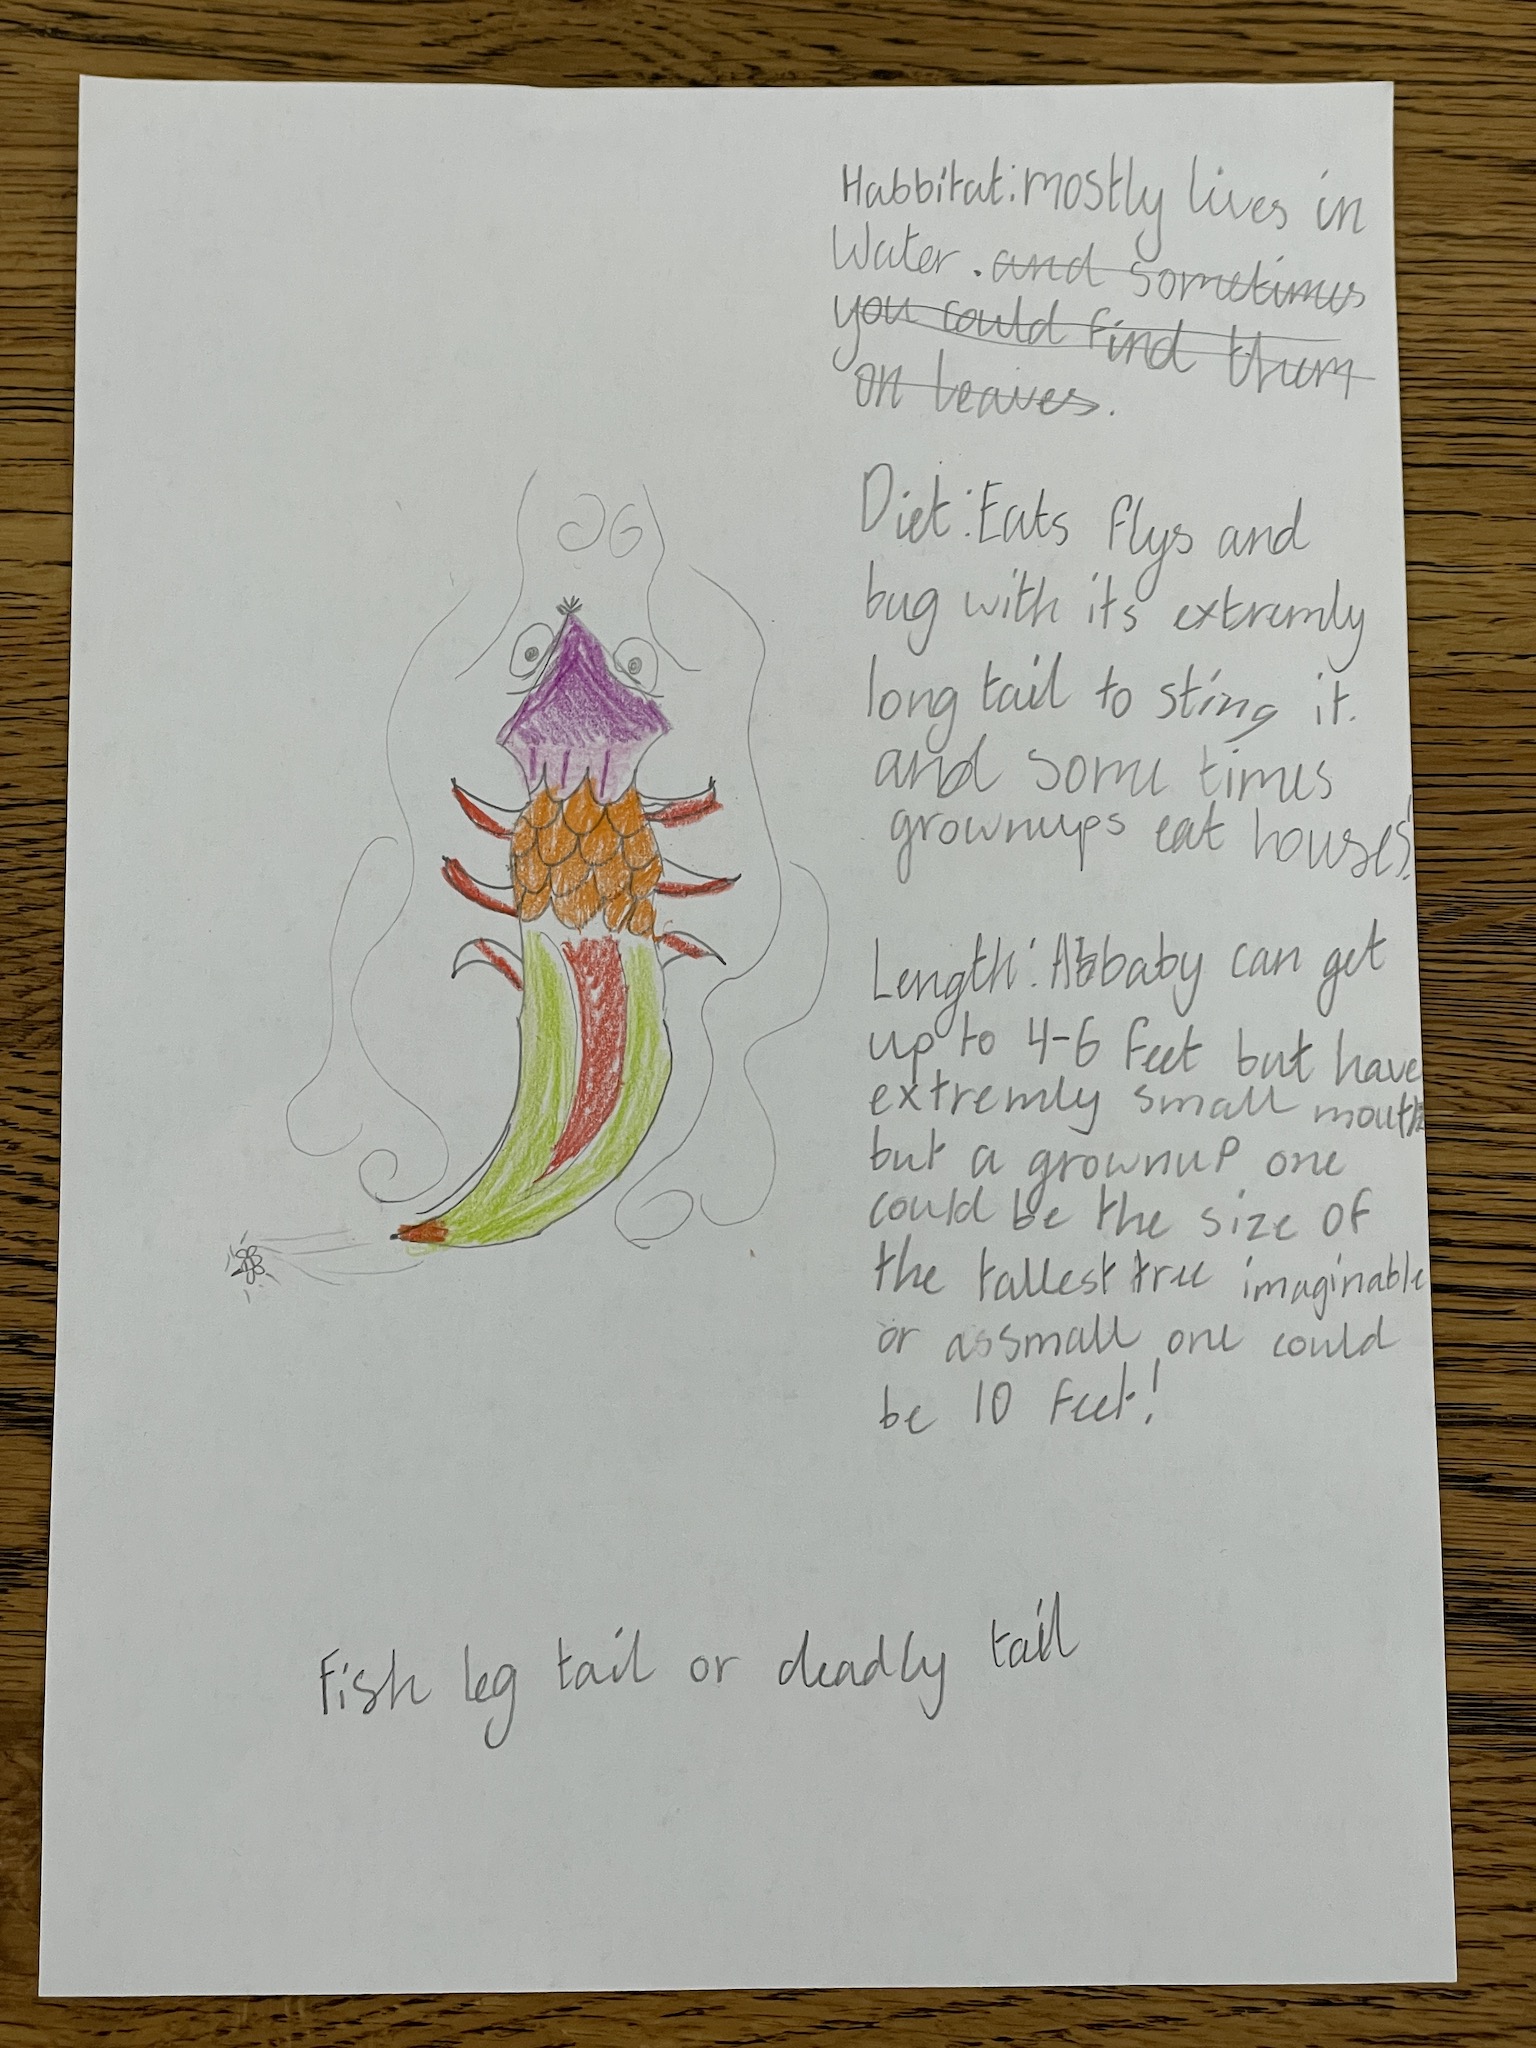 Habbitat: mostly lives in
Water. and sometimes
you could find them
on leaves.
Diet: Eats flys and
bug with its extremly
long tail to sting it.
and some times
grownups eat houses!
Length: A baby can get
up to 4-6 feet but have
extremly small mouth
but a grownup one
could be the size of
the tallest tree imaginable
or a small one could
be 10 feet!
Fish leg tail or deadly tail